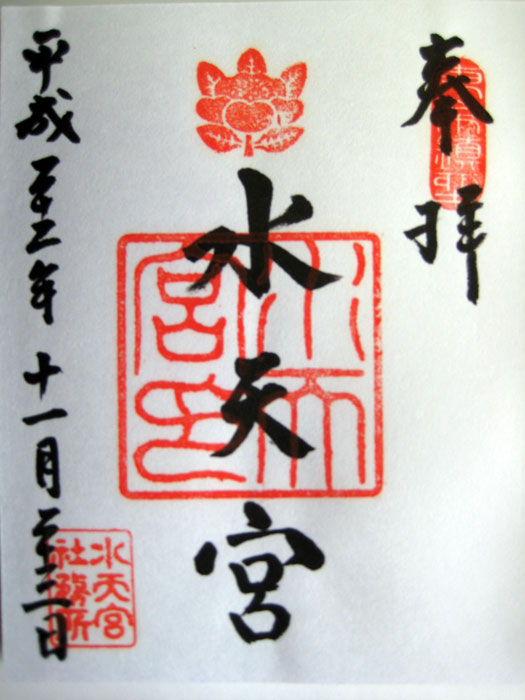 奉拝
水天宮
平成二十二年十一月二十三日
水天
宮印
水天宮
社務所